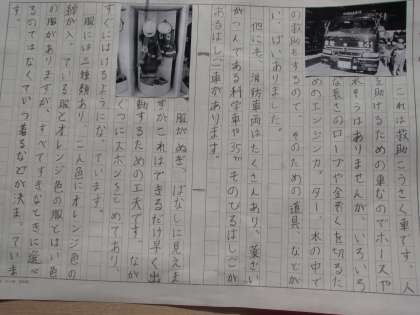 これは救助こうさく車です。人
を助けるための車なのでホースや
水そうはありませんが、いろいろ
な長さのロープや金ぞくを切るた
めのエンジンカッター、水の中で
の救助をするので、そのための道具、などが
いっぱいありました。
他にも、消防車両はたくさんあり、薬ざい
がつんである科学車や35mそのびるはしごが
あるはしご車があります。
服がぬぎっぱなしに見えま
すがこれはできるだけ早く出
動するための工夫です。なが
くつにズボンをとめてあり、
すぐにはけるようになっています。
服には三種類あり、こん色にオレンジ色の
線が入っている服とオレンジ色の服とはい色
の服がありますが、すべてすきなときに選べ
るのではなくていつ着るなどが決まっていま
す。